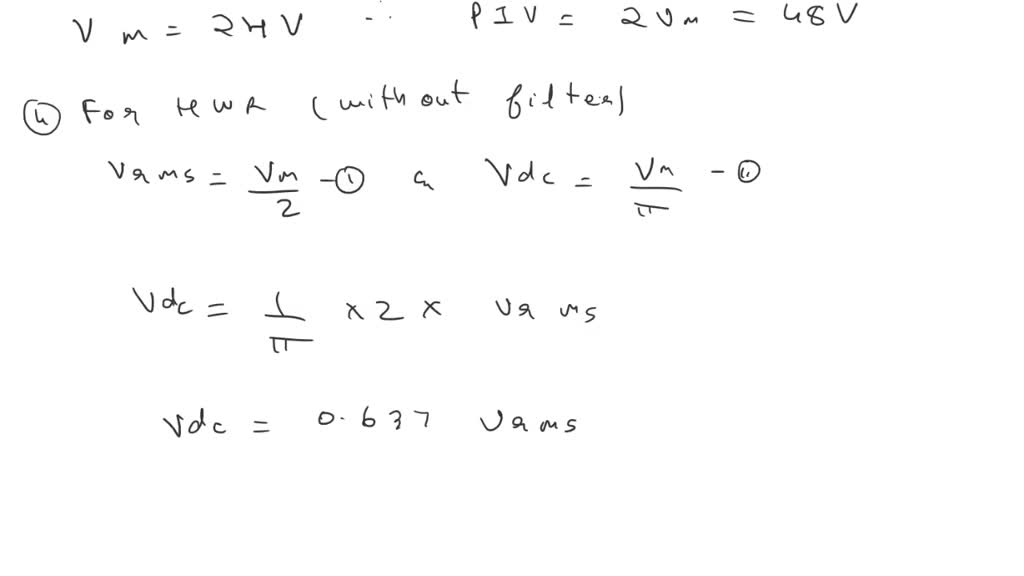 Vm = 24V ∴ PIV = 2Vm = 48V
(4) For HWR (without filter)
Vrms = Vm/2 - (i) & Vdc = Vm/π - (ii)
Vdc = 1/π × 2 × Vrms
Vdc = 0.637 Vrms